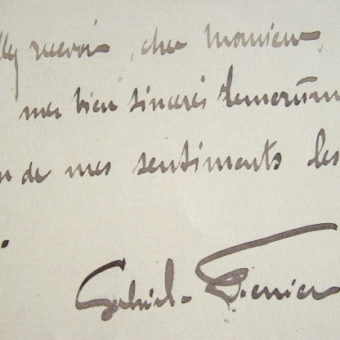 recevoir, cher Monsieur,
mes bien sincères
de mes sentiments les
Gabriel